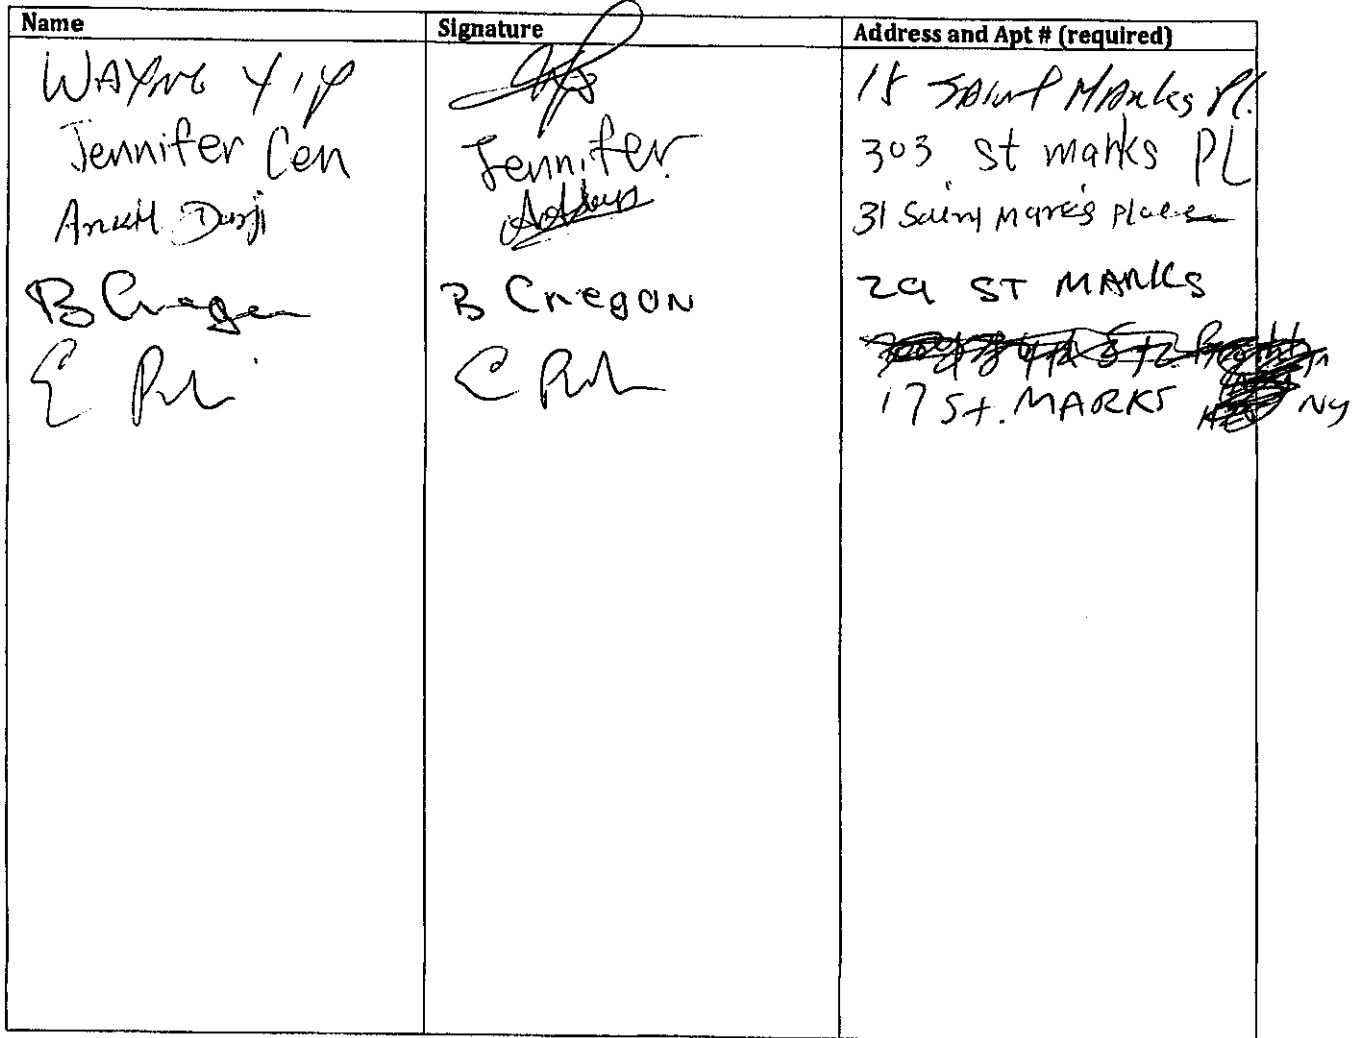 Name Signature Address and Apt # (required)
WAYNE YIP 18 SAINT MARKS Pl.
Jennifer Cen Jennifer 303 st marks PL
Darji 31 Saint Marks Place
B Cregan B CregoN 29 ST MARKS
E C 17 St. MARKS NY